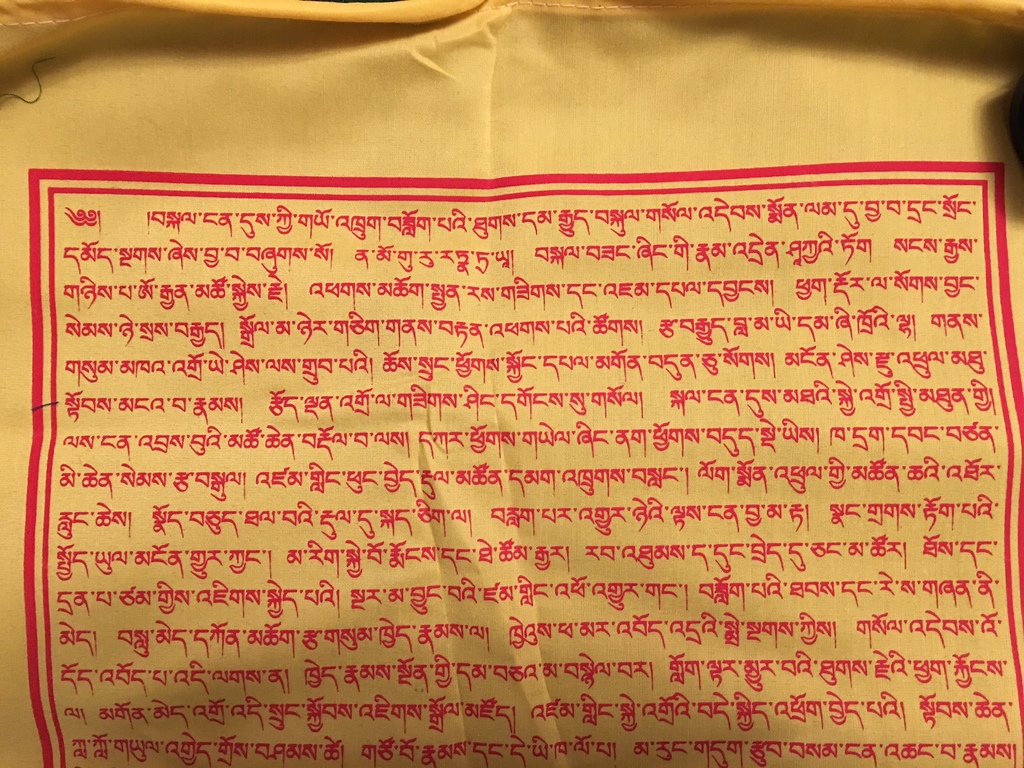 ༄༅།   །བསྐལ་ངན་དུས་ཀྱི་གཡོ་འཁྲུག་བཟློག་པའི་ཐུགས་དམ་རྒྱུད་བསྐུལ་གསོལ་འདེབས་སྨོན་ལམ་དུ་བྱ་བ་དྲང་སྲོང་
དམོད་སྔགས་ཞེས་བྱ་བ་བཞུགས་སོ།  ན་མོ་གུ་རུ་རཏྣ་ཏྲ་ཡཱ།  བསྐལ་བཟང་ཞིང་གི་རྣམ་འདྲེན་ཤཱཀྱའི་ཏོག  སངས་རྒྱས་
གཉིས་པ་ཨོ་རྒྱན་མཚོ་སྐྱེས་རྗེ།  འཕགས་མཆོག་སྤྱན་རས་གཟིགས་དང་འཇམ་དཔལ་དབྱངས།  ཕྱག་རྡོར་ལ་སོགས་བྱང་
སེམས་ཉེ་སྲས་བརྒྱད།  སྒྲོལ་མ་ཉེར་གཅིག་གནས་བརྟན་འཕགས་པའི་ཚོགས།  རྩ་བརྒྱུད་བླ་མ་ཡི་དམ་ཞི་ཁྲོའི་ལྷ།  གནས་
གསུམ་མཁའ་འགྲོ་ཡེ་ཤེས་ལས་གྲུབ་པའི།  ཆོས་སྲུང་ཕྱོགས་སྐྱོང་དཔལ་མགོན་བདུན་ཅུ་སོགས།  མངོན་ཤེས་རྫུ་འཕྲུལ་མཐུ་
སྟོབས་མངའ་བ་རྣམས།  རྩོད་ལྡན་འགྲོ་ལ་གཟིགས་ཤིང་དགོངས་སུ་གསོལ།  སྐལ་ངན་དུས་མཐའི་སྐྱེ་འགྲོ་སྤྱི་མཐུན་གྱི།
ལས་ངན་འབྲས་བུའི་མཚོ་ཆེན་བརྡོལ་བ་ལས།  དཀར་ཕྱོགས་གཡེལ་ཞིང་ནག་ཕྱོགས་བདུད་སྡེ་ཡིས།  ཁ་དྲག་དབང་བཙན་
མི་ཆེན་སེམས་རྩ་བསྐུལ།  འཛམ་གླིང་ཕུང་བྱེད་རྡུལ་མཚོན་དམག་འཁྲུགས་བསླང་།  ལོག་སྨོན་འཕྲུལ་གྱི་མཚོན་ཆའི་འཐོར་
རླུང་ཆེས།  སྣོད་བཅུད་ཐལ་བའི་རྡུལ་དུ་སྐད་ཅིག་ལ།  བརླག་པར་འགྱུར་ཉེའི་ལྟས་ངན་བྱ་མ་རྟ།  སྣང་གྲགས་རྟོག་པའི་
སྤྱོད་ཡུལ་མངོན་གྱུར་ཀྱང་།  མ་རིག་སྐྱེ་བོ་རྨོངས་དང་ཐེ་ཚོམ་རྒྱར།  རབ་འཐུམས་ད་དུང་བྲེད་དུ་ཅང་མ་ཚོར།  ཐོས་དང་
དྲན་པ་ཙམ་གྱིས་འཇིགས་སྐྱེད་པའི།  སྔར་མ་བྱུང་བའི་ཛམ་གླིང་འཕོ་འགྱུར་གང་།  བཟློག་པའི་ཐབས་དང་རེ་ས་གཞན་ནི་
མེད།  བསླུ་མེད་དཀོན་མཆོག་རྩ་གསུམ་ཁྱེད་རྣམས་ལ།  ཁྱེའུས་ཕ་མར་འབོད་འདྲའི་སྨྲེ་སྔགས་ཀྱིས།  གསོལ་འདེབས་འོ་
དོད་འབོད་པ་འདི་ལགས་ན།  ཁྱེད་རྣམས་སྔོན་གྱི་དམ་བཅའ་མ་བསྙེལ་བར།  གློག་ལྟར་མྱུར་བའི་ཐུགས་རྗེའི་ཕྱག་རྐྱོངས་
ལ།  མགོན་མེད་འགྲོ་འདི་སྲུང་སྐྱོབས་འཇིགས་སྒྲོལ་མཛོད།  འཛམ་གླིང་སྐྱེ་འགྲོའི་བདེ་སྐྱིད་འཕྲོག་བྱེད་པའི།  སྟོབས་ཆེན་
ཀླ་ཀློ་གཡུལ་འགྱེད་གྲོས་བཤམས་ཚེ།  གཙོ་བོ་རྣམས་དང་དེ་ཡི་ཁ་ལོ་པ།  མ་རུང་གདུག་རྩུབ་བསམ་ངན་འཆང་བ་རྣམས།